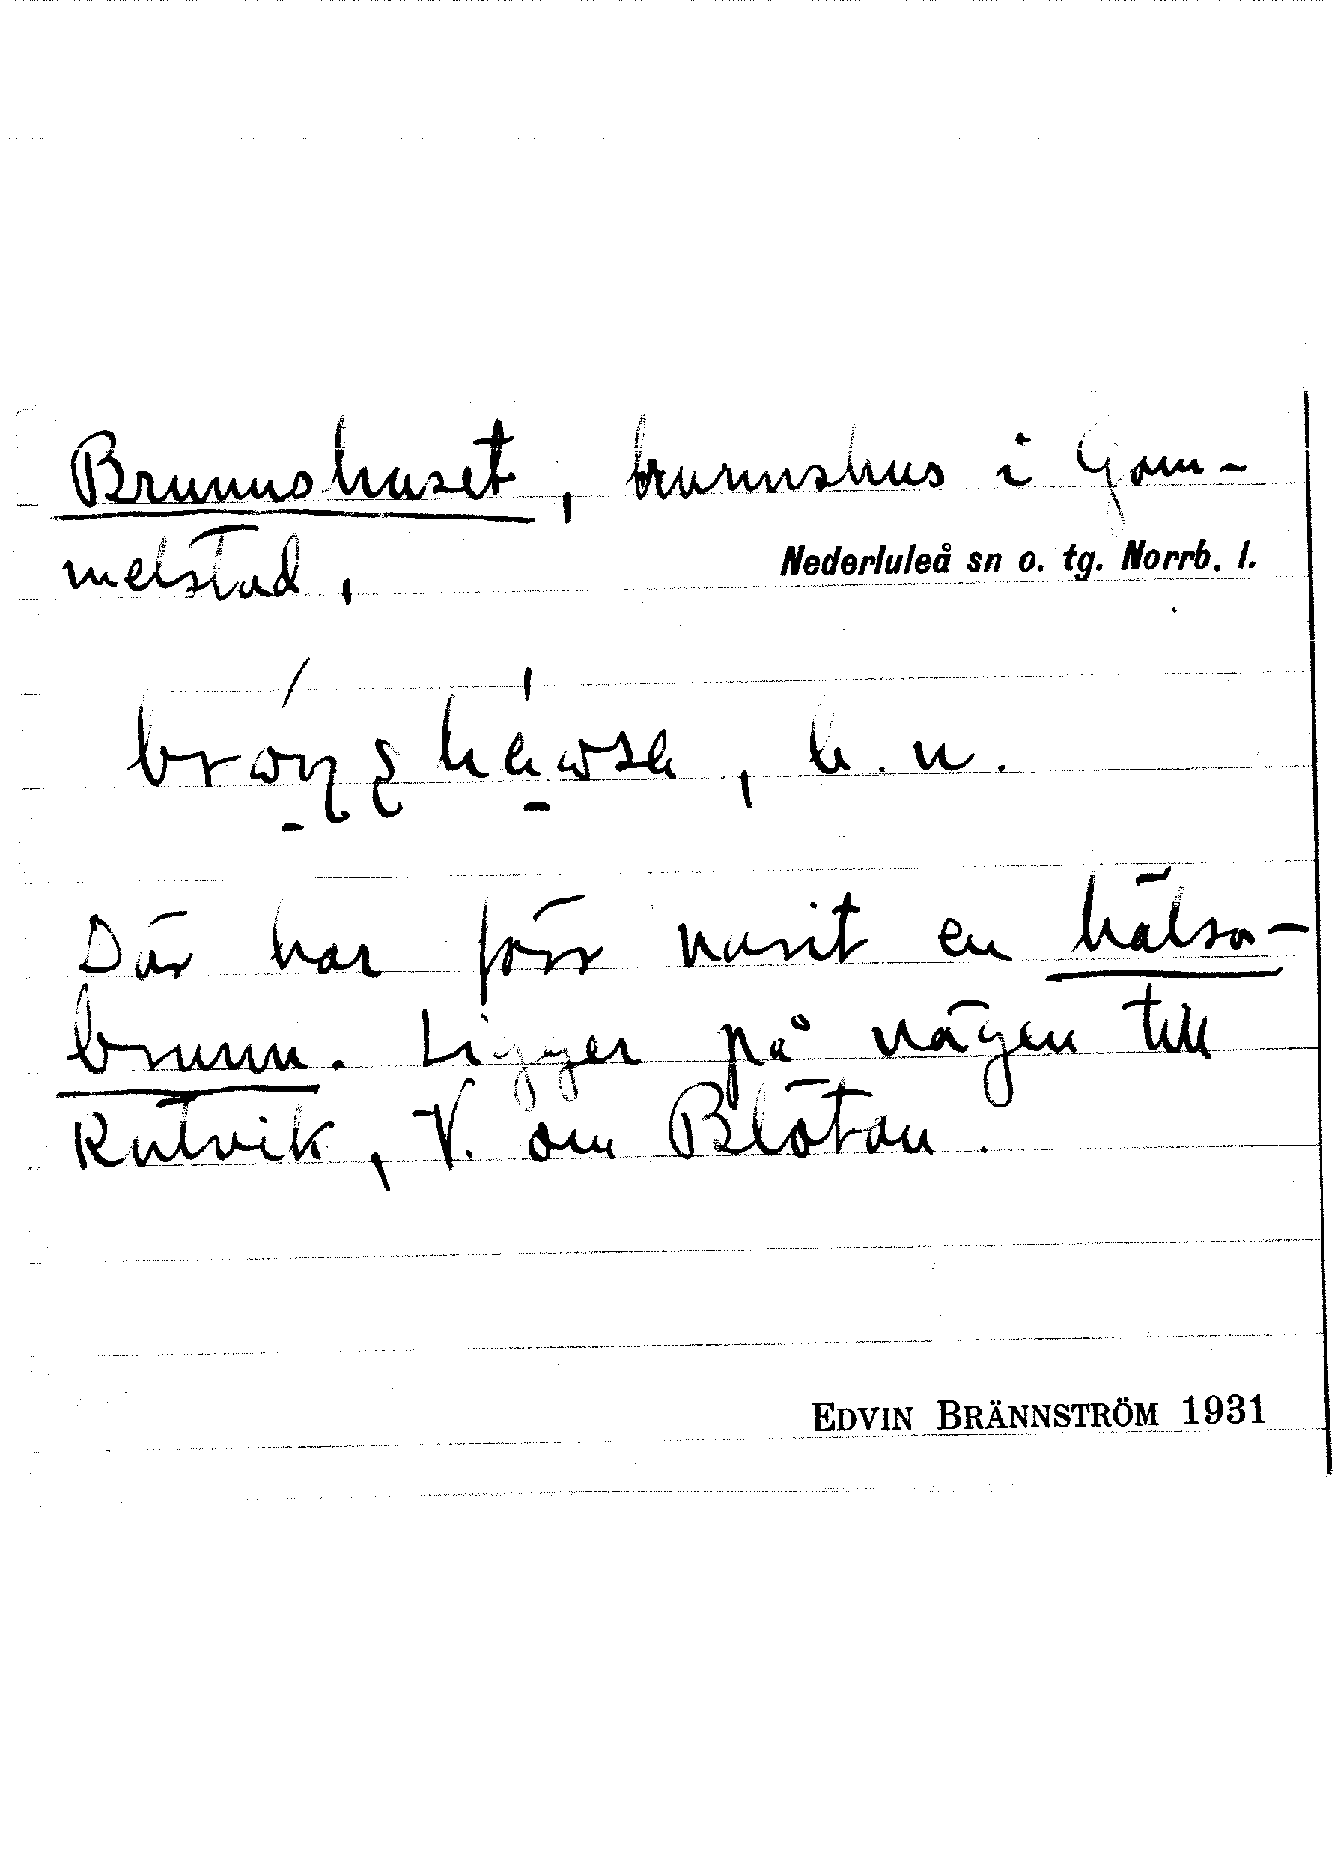 Brunnshuset, brunnshus i Gam-
melstad,
Nederluleå sn o. tg. Norrb. l.
b. n.
Där har förr varit en hälso-
brunn. Ligger på vägen till
Rutvik, V. om Blötan.
EDVIN BRÄNNSTRÖM 1931